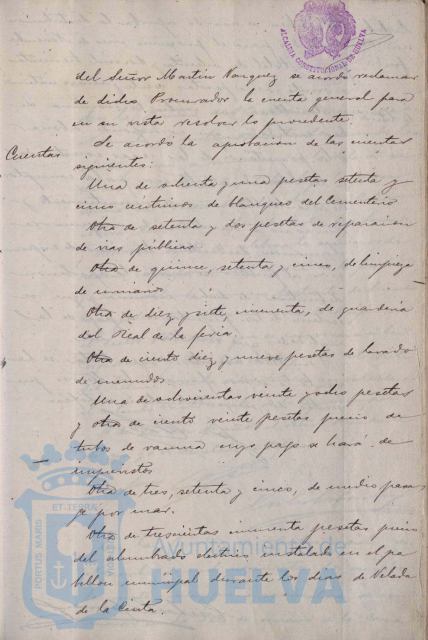 ALCALDIA CONSTITUCIONAL DE HUELVA
del Señor Martin Vazquez se acordo reclamar
de dicho Procurador la cuenta general para
en su vista resolver lo procedente.
Cuentas
Se acordó la aprobacion de las cuentas
siguientes:
Una de ochenta y una pesetas setenta y
cinco centimos de blanqueo del Cementerio
Otra de setenta y dos pesetas de reparacion
de vias públicas
Otra de quince, setenta y cinco, de limpieza
de
Otra de diez y siete, cincuenta, de guarderia
del Real de la feria.
Otra de ciento diez y nueve pesetas de lavado
de menudos.
Una de ochocientas veinte y ocho pesetas
y otra de ciento veinte pesetas precio de
tubos de vacuna cuyo pago se hará de
imprevistos
Otra de tres, setenta y cinco, de medio pasa
je por mar.
Otra de trescientas cincuenta pesetas precio
del alumbrado electrico instalado en el pa
bellon municipal durante los dias de Velada
de la Cinta.
PORTUS MARIS ET TERRAE CUSTODIA
Ayuntamiento de
HUELVA